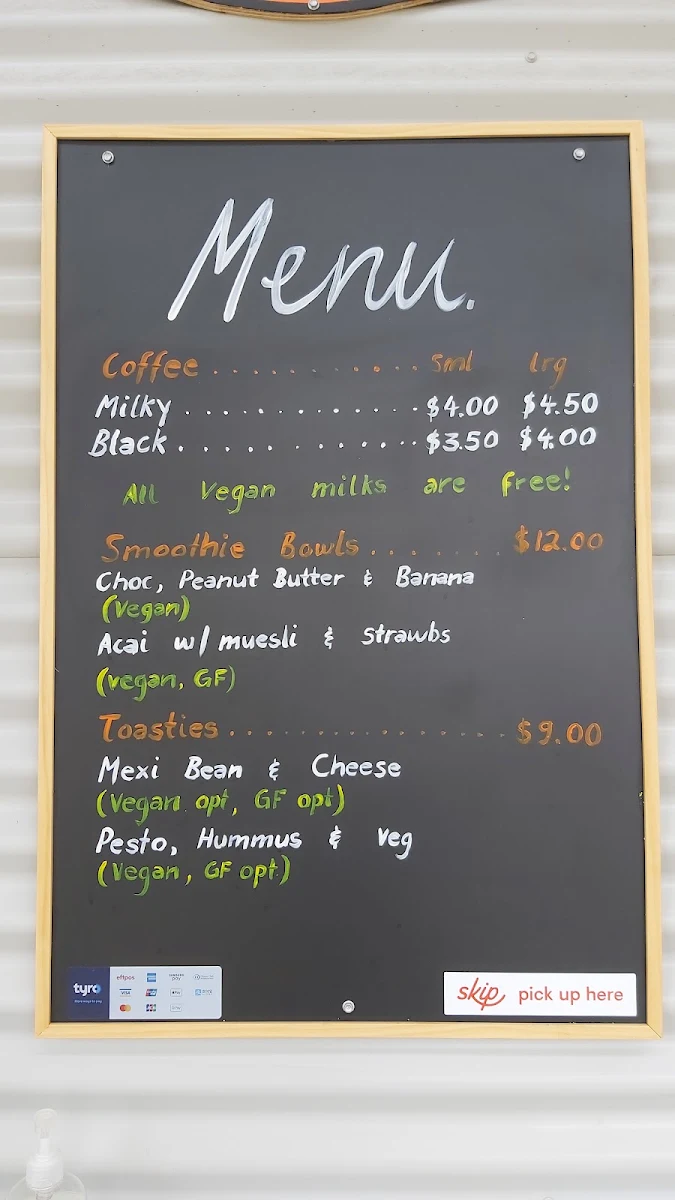 Menu.
Coffee ............ Sml lrg
Milky ............. $4.00 $4.50
Black .............. $3.50 $4.00
All Vegan milks are free!
Smoothie Bowls ....... $12.00
Choc, Peanut Butter & Banana
(Vegan)
Acai w/ muesli & strawbs
(vegan, GF)
Toasties .................. $9.00
Mexi Bean & Cheese
(Vegan opt, GF opt)
Pesto, Hummus & Veg
(Vegan, GF opt)
tyro
eftpos
VISA
skip pick up here